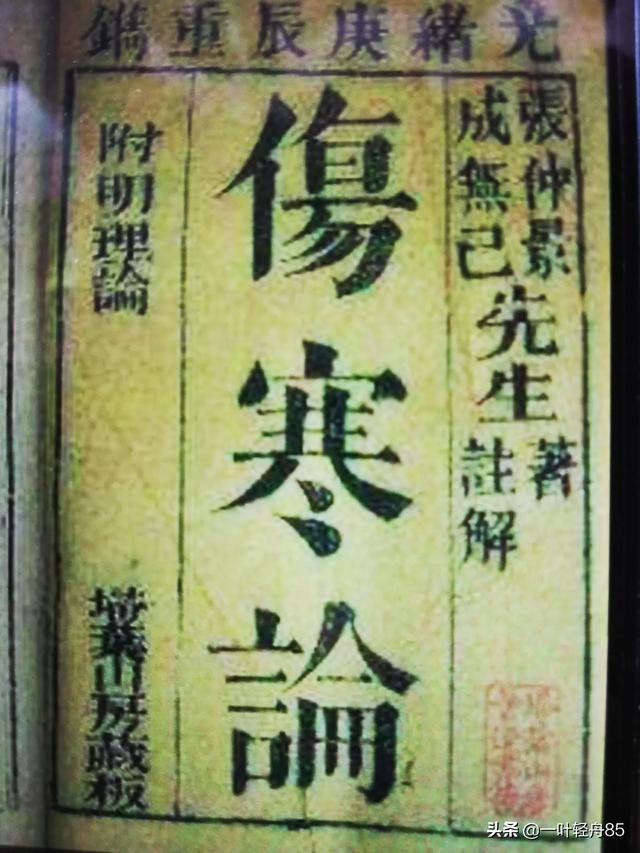 光緒庚辰重鐫
張仲景
成無己
先生
著
註解
傷寒論
附明理論
埽葉山房藏板
头条 @一叶轻舟85